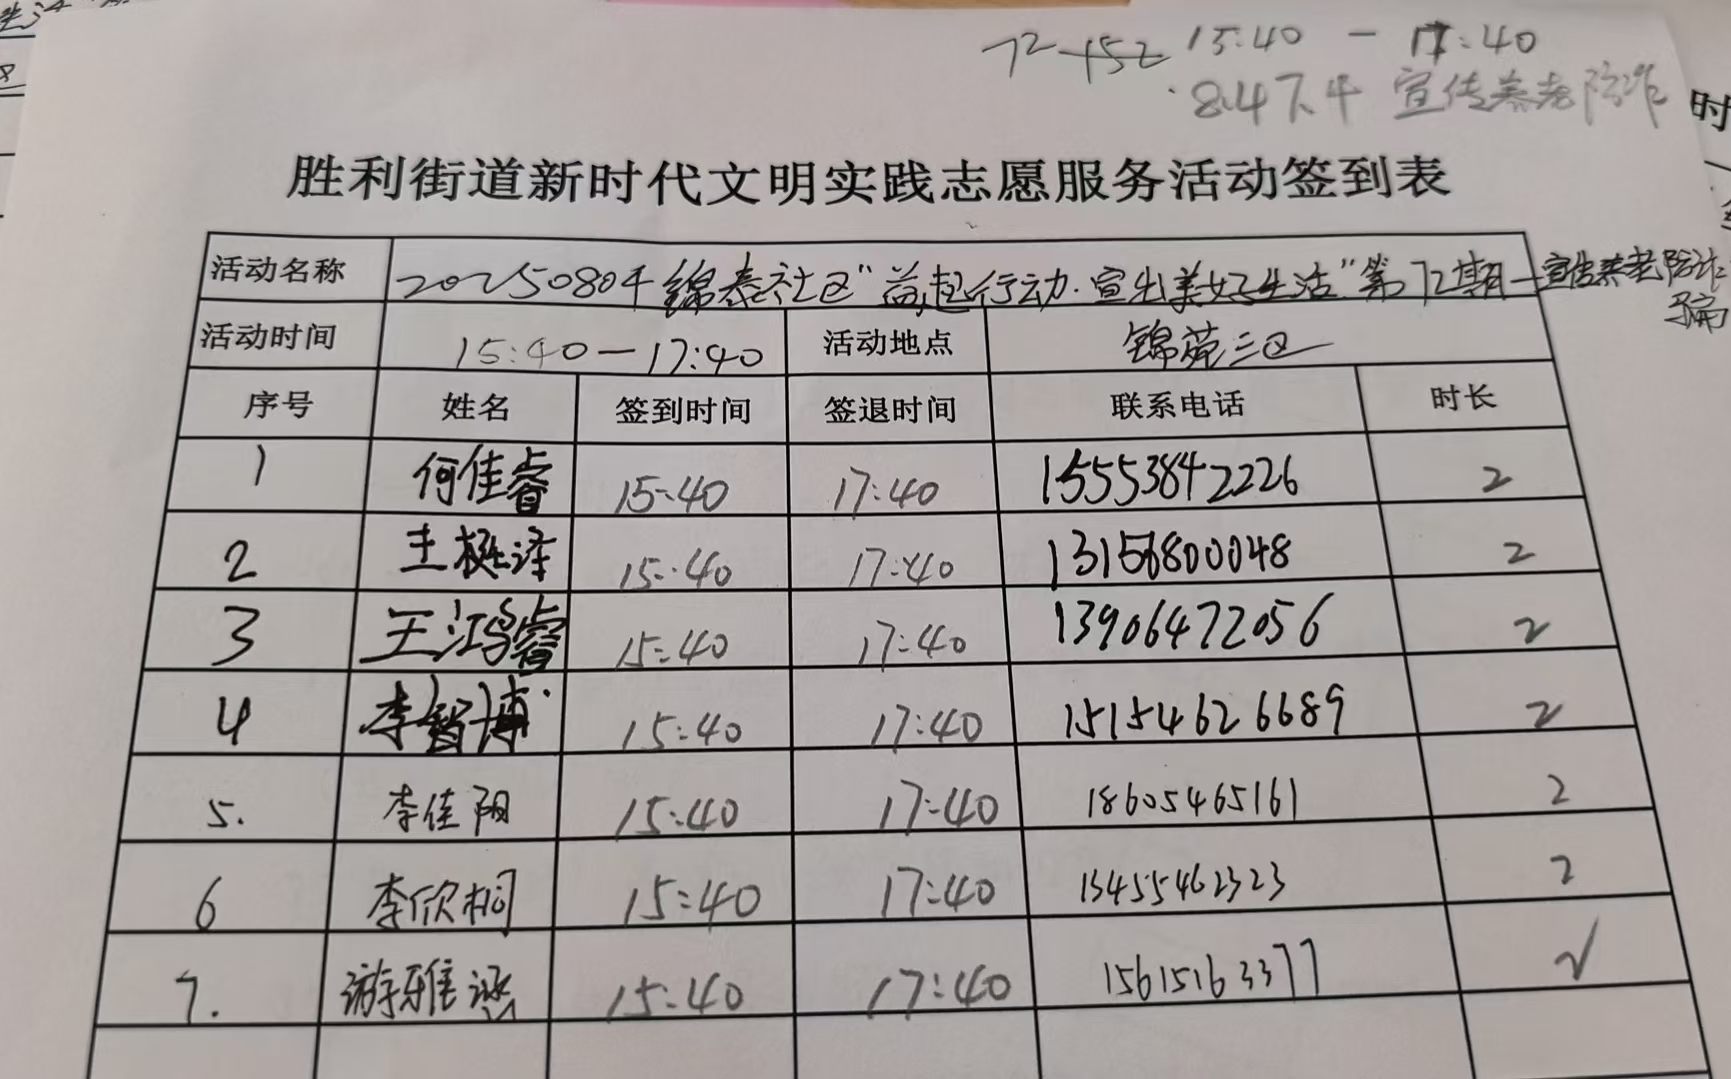 15:40 - 17:40
8.4下午 宣传养老防诈
胜利街道新时代文明实践志愿服务活动签到表
活动名称 20250804锦泰社区"益起行动·宣出美好生活"第72期—宣传养老防诈骗
活动时间 15:40—17:40 活动地点 锦苑三区
序号 姓名 签到时间 签退时间 联系电话 时长
1 何佳睿 15:40 17:40 15553842226 2
2 王梃泽 15:40 17:40 13156800048 2
3 王鸿睿 15:40 17:40 13906472056 2
4 李智博 15:40 17:40 15154626689 2
5. 李佳阳 15:40 17:40 18605465161 2
6 李欣桐 15:40 17:40 13455462323 2
7. 游雅涵 15:40 17:40 15615163377 √
时